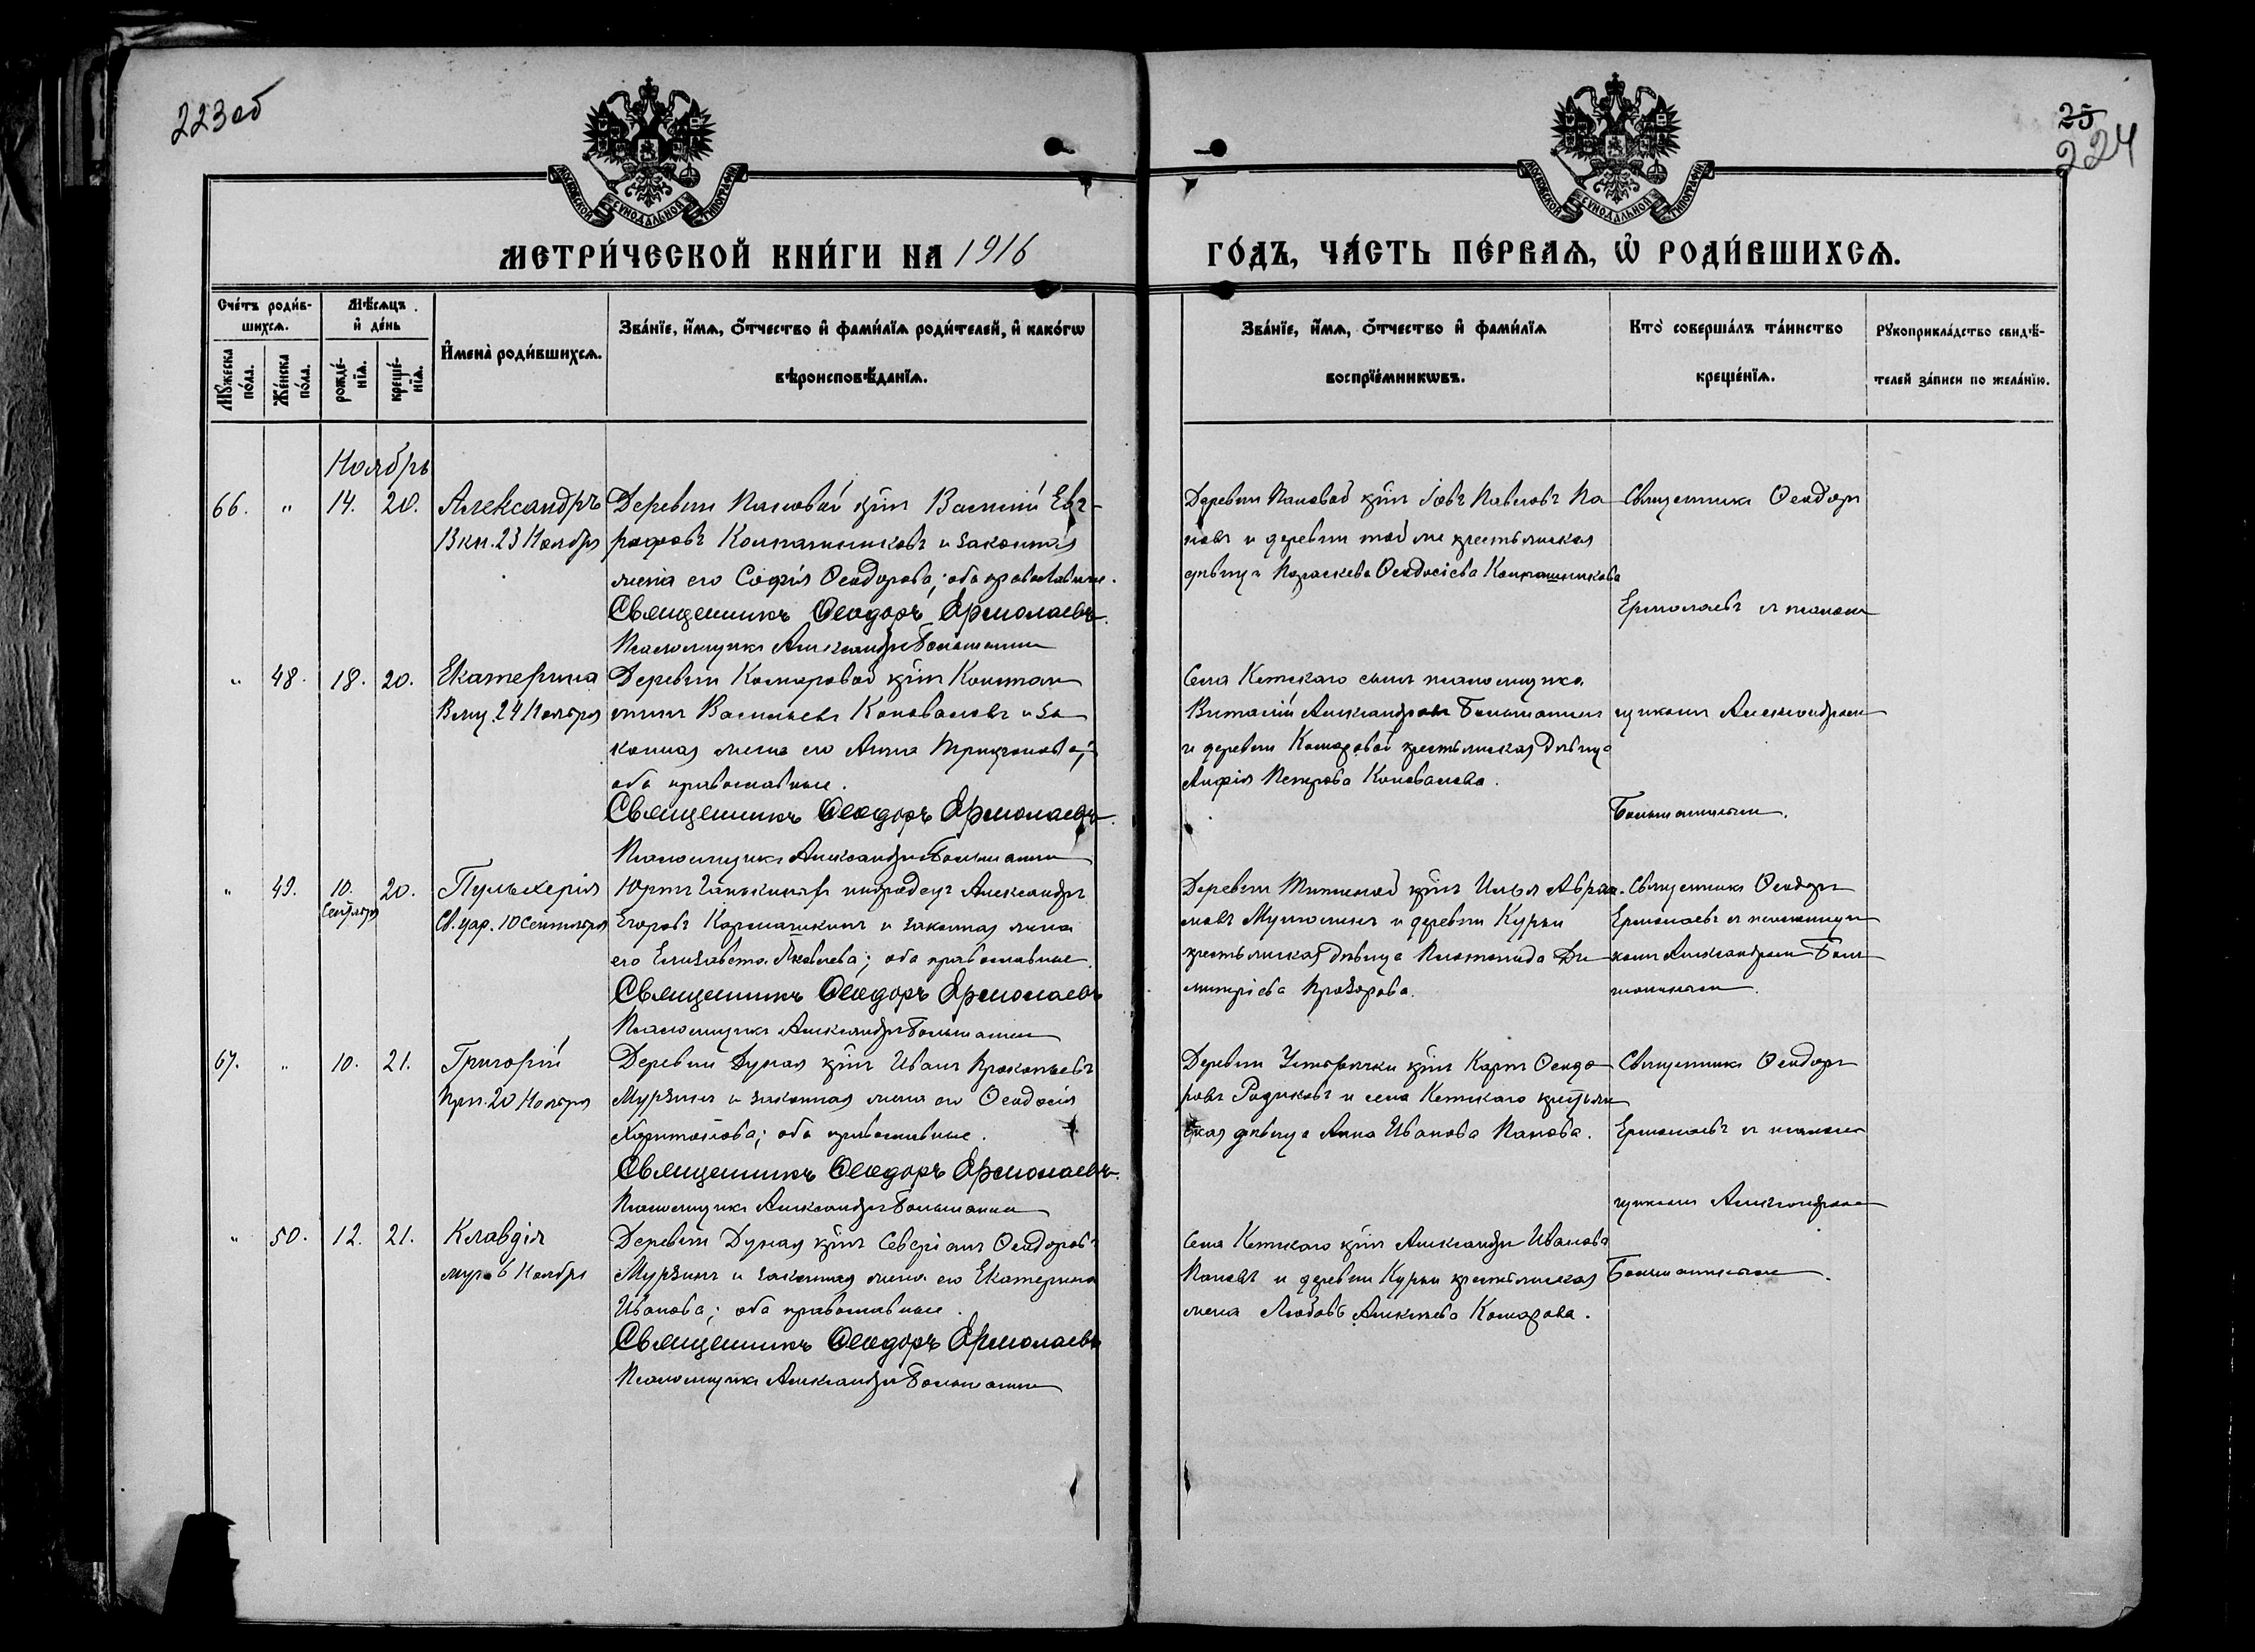 223об
25
224
МОСКОВСКОЙ СУНОДАЛЬНОЙ ТИПОГРАФІИ
МОСКОВСКОЙ СУНОДАЛЬНОЙ ТИПОГРАФІИ
МЕТРИ́ЧЕСКОЙ КНИ́ГИ НА 1916
ГО́ДЪ, ЧА́СТЬ ПЕ́РВАѦ, Ѽ РОДИ́ВШИХСѦ.
Сче́тъ роди́в-
шихсѧ.
Мѣ́сѧцъ
и҆ де́нь
Мꙋ́жеска по́ла.
Же́нска по́ла.
рожде́-нїѧ.
креще́-нїѧ.
И҆мена̀ роди́вшихсѧ.
Зва́нїе, и҆́мѧ, ѻ҆́тчество и҆ фами́лїѧ роди́телей, и҆ како́гѡ
вѣроисповѣ́данїѧ.
Зва́нїе, и҆́мѧ, ѻ҆́тчество и҆ фами́лїѧ
воспрїе́мникѡвъ.
Кто̀ соверша́лъ та́инство
креще́нїѧ.
Рꙋкоприкла́дство свидѣ́-
телей за́писи по жела́нїю.
Ноябрь
66. " 14. 20. Александръ
Вкм. 23 Ноября
Деревни Пановой крін Василій Евг-
рафовъ Колпашниковъ и законная
жена его Софія Ѳеодорова; оба православные.
Священникъ Ѳеодоръ Ермолаевъ.
Псаломщикъ Александръ Большанин
Деревни Пановой крін Іовъ Павловъ Па
новъ и деревни той же крестьянская
дѣвица Параскева Ѳеодосіева Колпашникова
Священникъ Ѳеодоръ
Ермолаевъ съ псалом
" 48. 18. 20. Екатерина
Вмц. 24 Ноября
Деревни Комаровой крін Констан
тинъ Васильевъ Коноваловъ и за
конная жена его Анна Трифонова;
оба православные.
Священникъ Ѳеодоръ Ермолаевъ.
Псаломщикъ Александръ Большанин
Села Кетскаго сынъ псаломщика
Виталій Александровъ Большанин
и деревни Комаровой крестьянская дѣвица
Анфія Петрова Коновалова.
щикомъ Александромъ
Большаниным.
" 49. 10. 20. Пульхерія
Сентября
Св. цар. 10 Сентября
Юртъ инородецъ Александръ
Егоровъ Карманикинъ и законная жена
его Елизавета Яковлева; оба православные.
Священникъ Ѳеодоръ Ермолаевъ
Псаломщикъ Александръ Большанин
Деревни Типиной крін Илья Абра
мовъ и деревни Курьи
крестьянская дѣвица Клеопатра Ди
митріева Прозорова.
Священникъ Ѳеодоръ
Ермолаевъ съ псаломщи
комъ Александромъ Боль
шаниным.
67. " 10. 21. Григорій
Прп. 20 Ноября
Деревни Дуная крін Иванъ Прокопьевъ
Мурзинъ и законная жена его Ѳеодосія
Харитонова; оба православные.
Священникъ Ѳеодоръ Ермолаевъ.
Псаломщикъ Александръ Большанин
Деревни Устрѣчки крін Карпъ Ѳеодо
ровъ Родиковъ и села Кетскаго крестьян
ская дѣвица Анна Иванова Панова.
Священникъ Ѳеодоръ
Ермолаевъ съ псалом
щикомъ Александромъ
" 50. 12. 21. Клавдія
муч. 6 Ноября
Деревни Дуная крін Северіанъ Ѳеодоровъ
Мурзинъ и законная жена его Екатерина
Иванова; оба православные.
Священникъ Ѳеодоръ Ермолаевъ
Псаломщикъ Александръ Большанин
Села Кетскаго крін Александръ Ивановъ
Пановъ и деревни Курьи крестьянская
жена Любовь Алексѣева Комарова.
Большаниным.